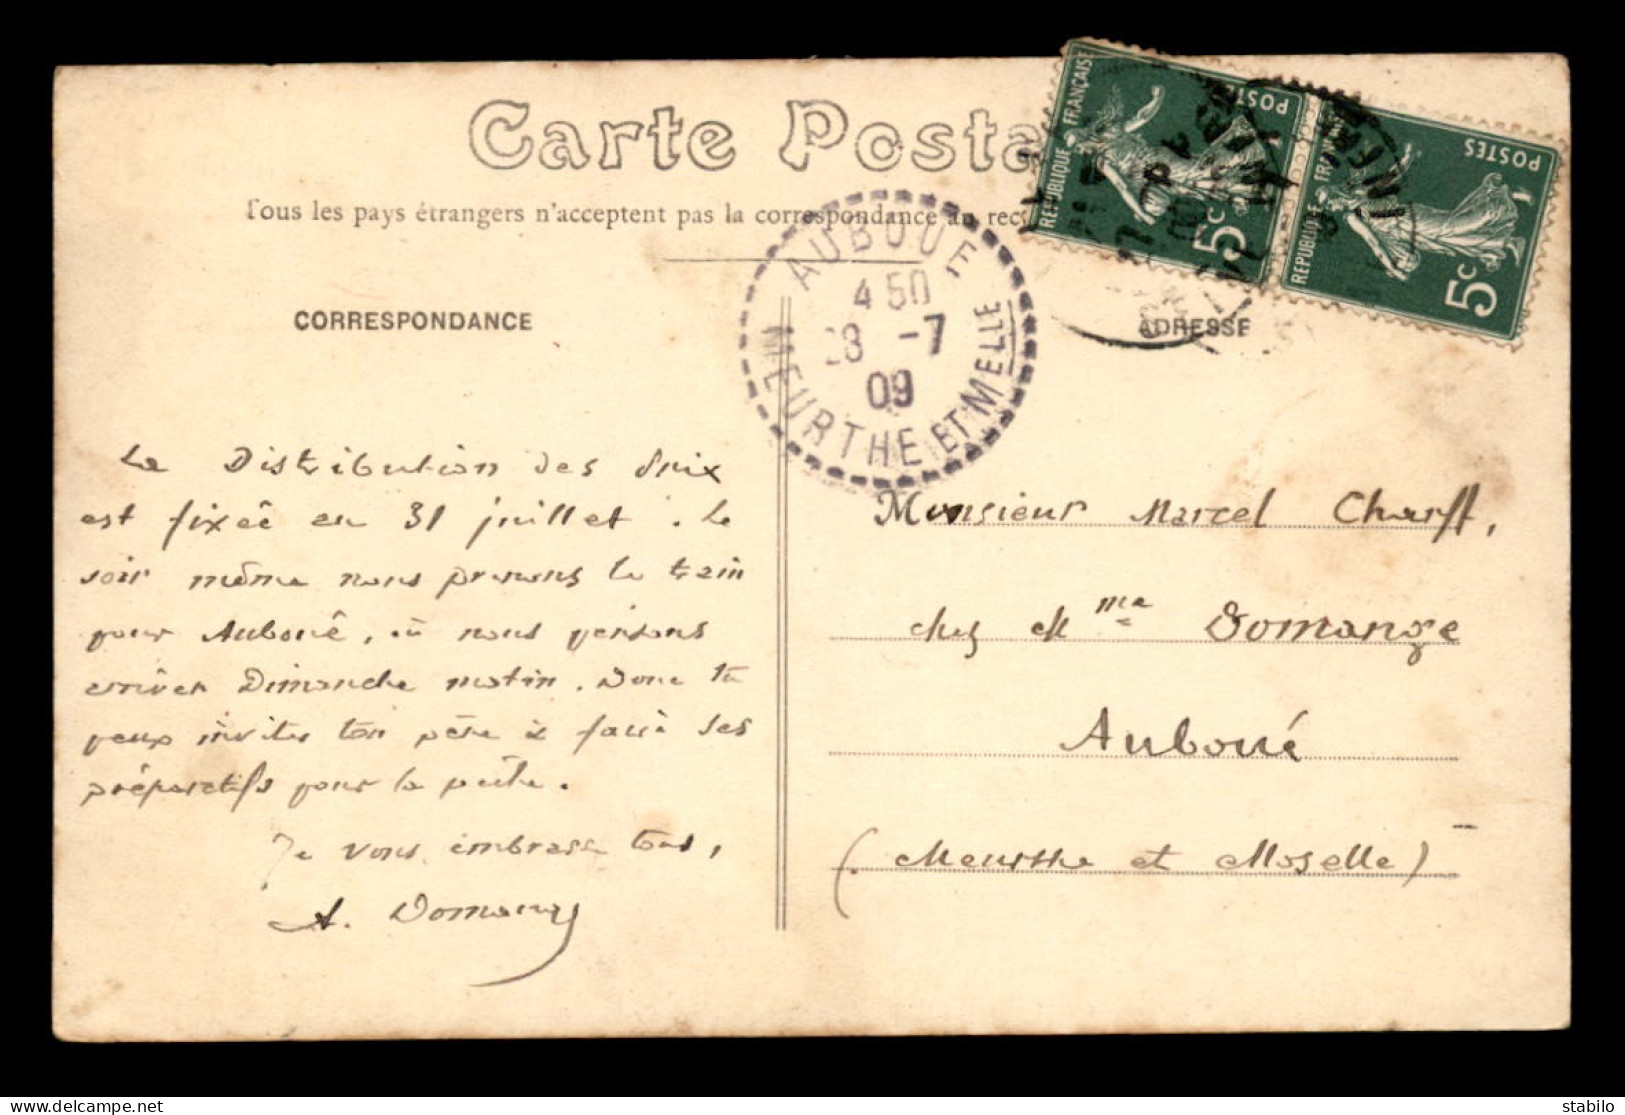 Carte Posta
Tous les pays étrangers n'acceptent pas la correspondance au rec
CORRESPONDANCE
ADRESSE
RÉPUBLIQUE FRANÇAISE
POSTES
5c
RÉPUBLIQUE FRANÇAISE
POSTES
5c
AUBOUE
4 50
28 -7
09
MEURTHE ET MELLE
La Distribution des Prix
est fixée au 31 juillet. Le
soir même nous prenons le train
pour Auboué, où nous pensons
arriver Dimanche matin. Donc tu
peux inviter ton père à faire ses
préparatifs pour la pêche.
Je vous embrasse tous,
A. Domange
Monsieur Marcel Charff,
chez Mme Domange
Auboué
(Meurthe et Moselle)
©delcampe.net
stabilo